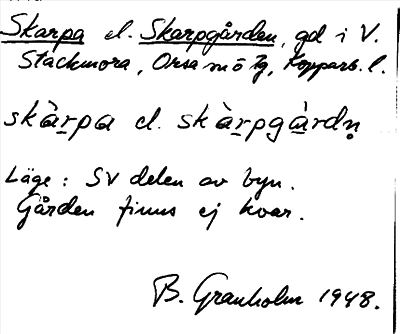 Skarpa el. Skarpgården, gd i V.
Stackmora, Orsa sn o tg, Kopparb. l.
skàrpa el. skàrpgàrdn̥
Läge: SV delen av byn.
Gården finns ej kvar.
B. Granholm 1948.